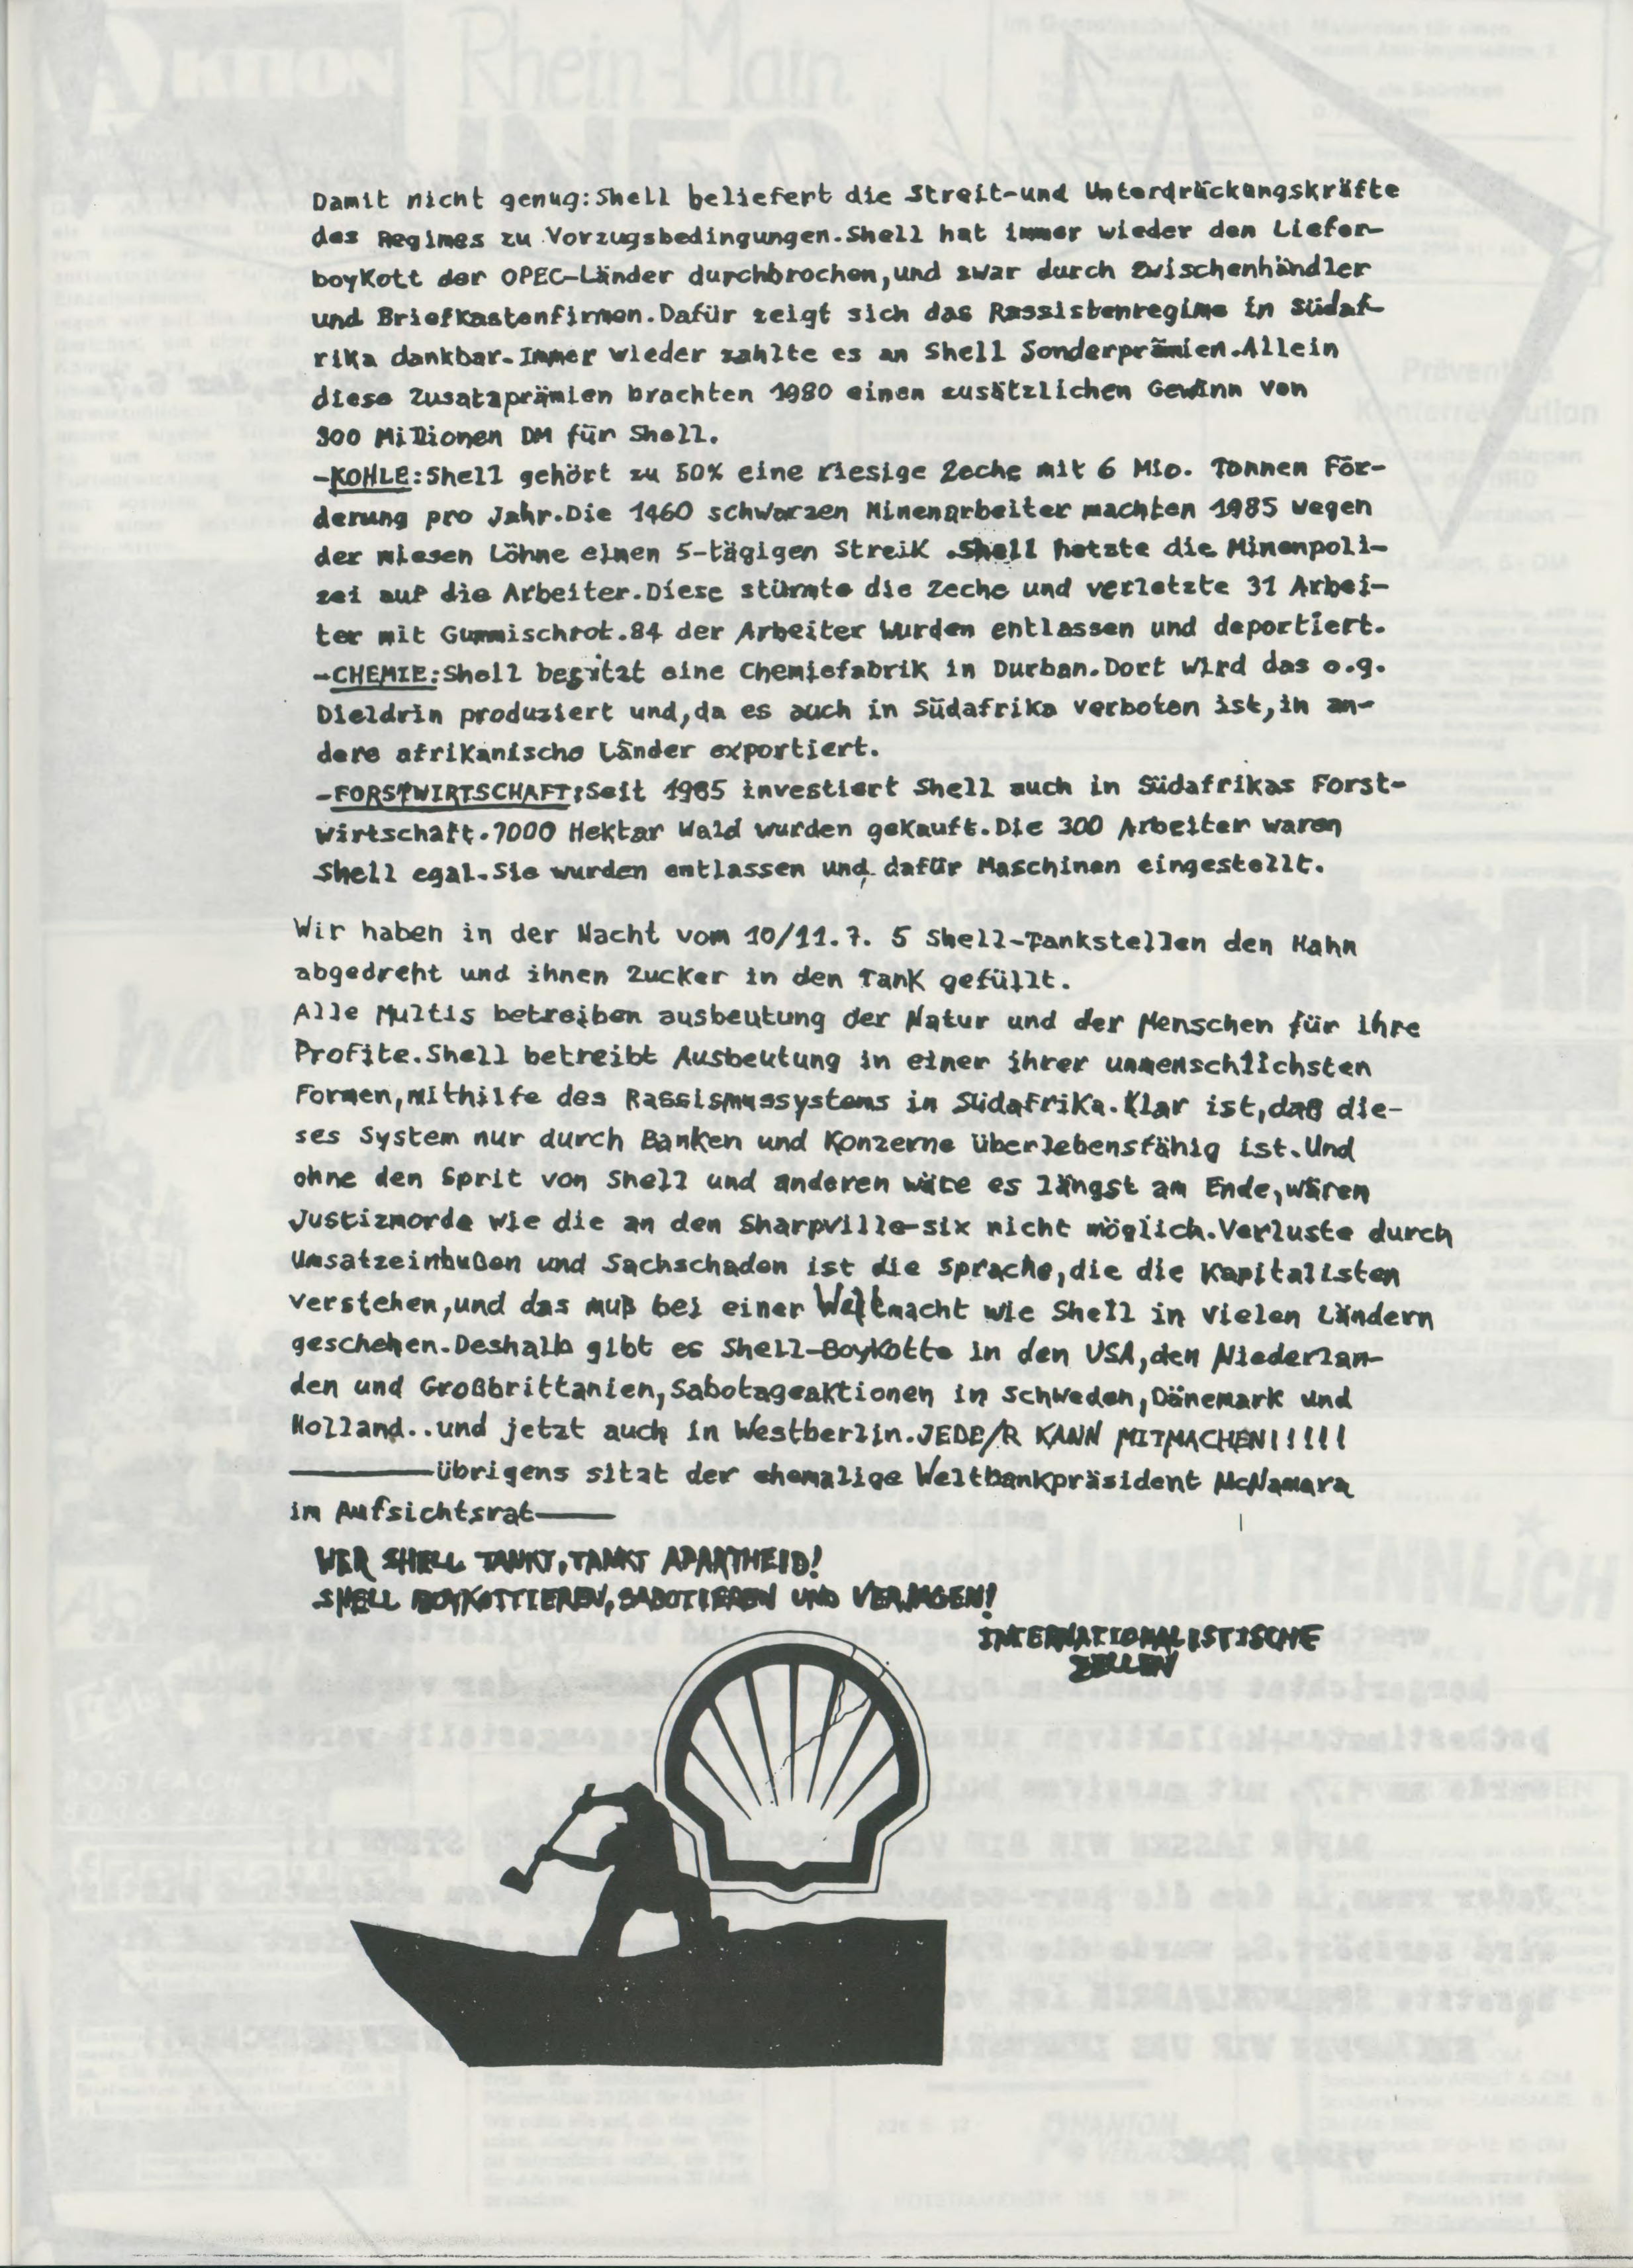 Damit nicht genug:Shell beliefert die Streit-und Unterdrückungskräfte
des Regimes zu Vorzugsbedingungen.Shell hat immer wieder den Liefer-
boykott der OPEC-Länder durchbrochen,und zwar durch Zwischenhändler
und Briefkastenfirmen.Dafür zeigt sich das Rassistenregime in Südaf-
rika dankbar.Immer wieder zahlte es an Shell Sonderprämien.Allein
diese Zusatzprämien brachten 1980 einen zusätzlichen Gewinn von
300 Millionen DM für Shell.
-KOHLE:Shell gehört zu 50% eine riesige Zeche mit 6 Mio. Tonnen För-
derung pro Jahr.Die 1460 schwarzen Minenarbeiter machten 1985 wegen
der miesen Löhne einen 5-tägigen Streik .Shell hetzte die Minenpoli-
zei auf die Arbeiter.Diese stürmte die Zeche und verletzte 31 Arbei-
ter mit Gummischrot.84 der Arbeiter wurden entlassen und deportiert.
-CHEMIE:Shell besitzt eine Chemiefabrik in Durban.Dort wird das o.g.
Dieldrin produziert und,da es auch in Südafrika verboten ist,in an-
dere afrikanische Länder exportiert.
-FORSTWIRTSCHAFT:Seit 1985 investiert Shell auch in Südafrikas Forst-
wirtschaft.7000 Hektar Wald wurden gekauft.Die 300 Arbeiter waren
Shell egal.Sie wurden entlassen und dafür Maschinen eingestellt.
Wir haben in der Nacht vom 10/11.7. 5 Shell-Tankstellen den Hahn
abgedreht und ihnen Zucker in den Tank gefüllt.
Alle Multis betreiben ausbeutung der Natur und der Menschen für ihre
Profite.Shell betreibt Ausbeutung in einer ihrer unmenschlichsten
Formen,mithilfe des Rassismussystems in Südafrika.Klar ist,daß die-
ses System nur durch Banken und Konzerne überlebensfähig ist.Und
ohne den Sprit von Shell und anderen wäre es längst am Ende,wären
Justizmorde wie die an den Sharpville-six nicht möglich.Verluste durch
Umsatzeinbußen und Sachschaden ist die Sprache,die die Kapitalisten
verstehen,und das muß bei einer Weltmacht wie Shell in vielen Ländern
geschehen.Deshalb gibt es Shell-Boykotte in den USA,den Niederlan-
den und Großbrittanien,Sabotageaktionen in Schweden,Dänemark und
Holland..und jetzt auch in Westberlin.JEDE/R KANN MITMACHEN!!!!!
————übrigens sitzt der ehemalige Weltbankpräsident McNamara
im Aufsichtsrat——
WER SHELL TANKT,TANKT APARTHEID!
SHELL BOYKOTTIEREN,SABOTIEREN UND VERJAGEN!
INTERNATIONALISTISCHE
ZELLEN